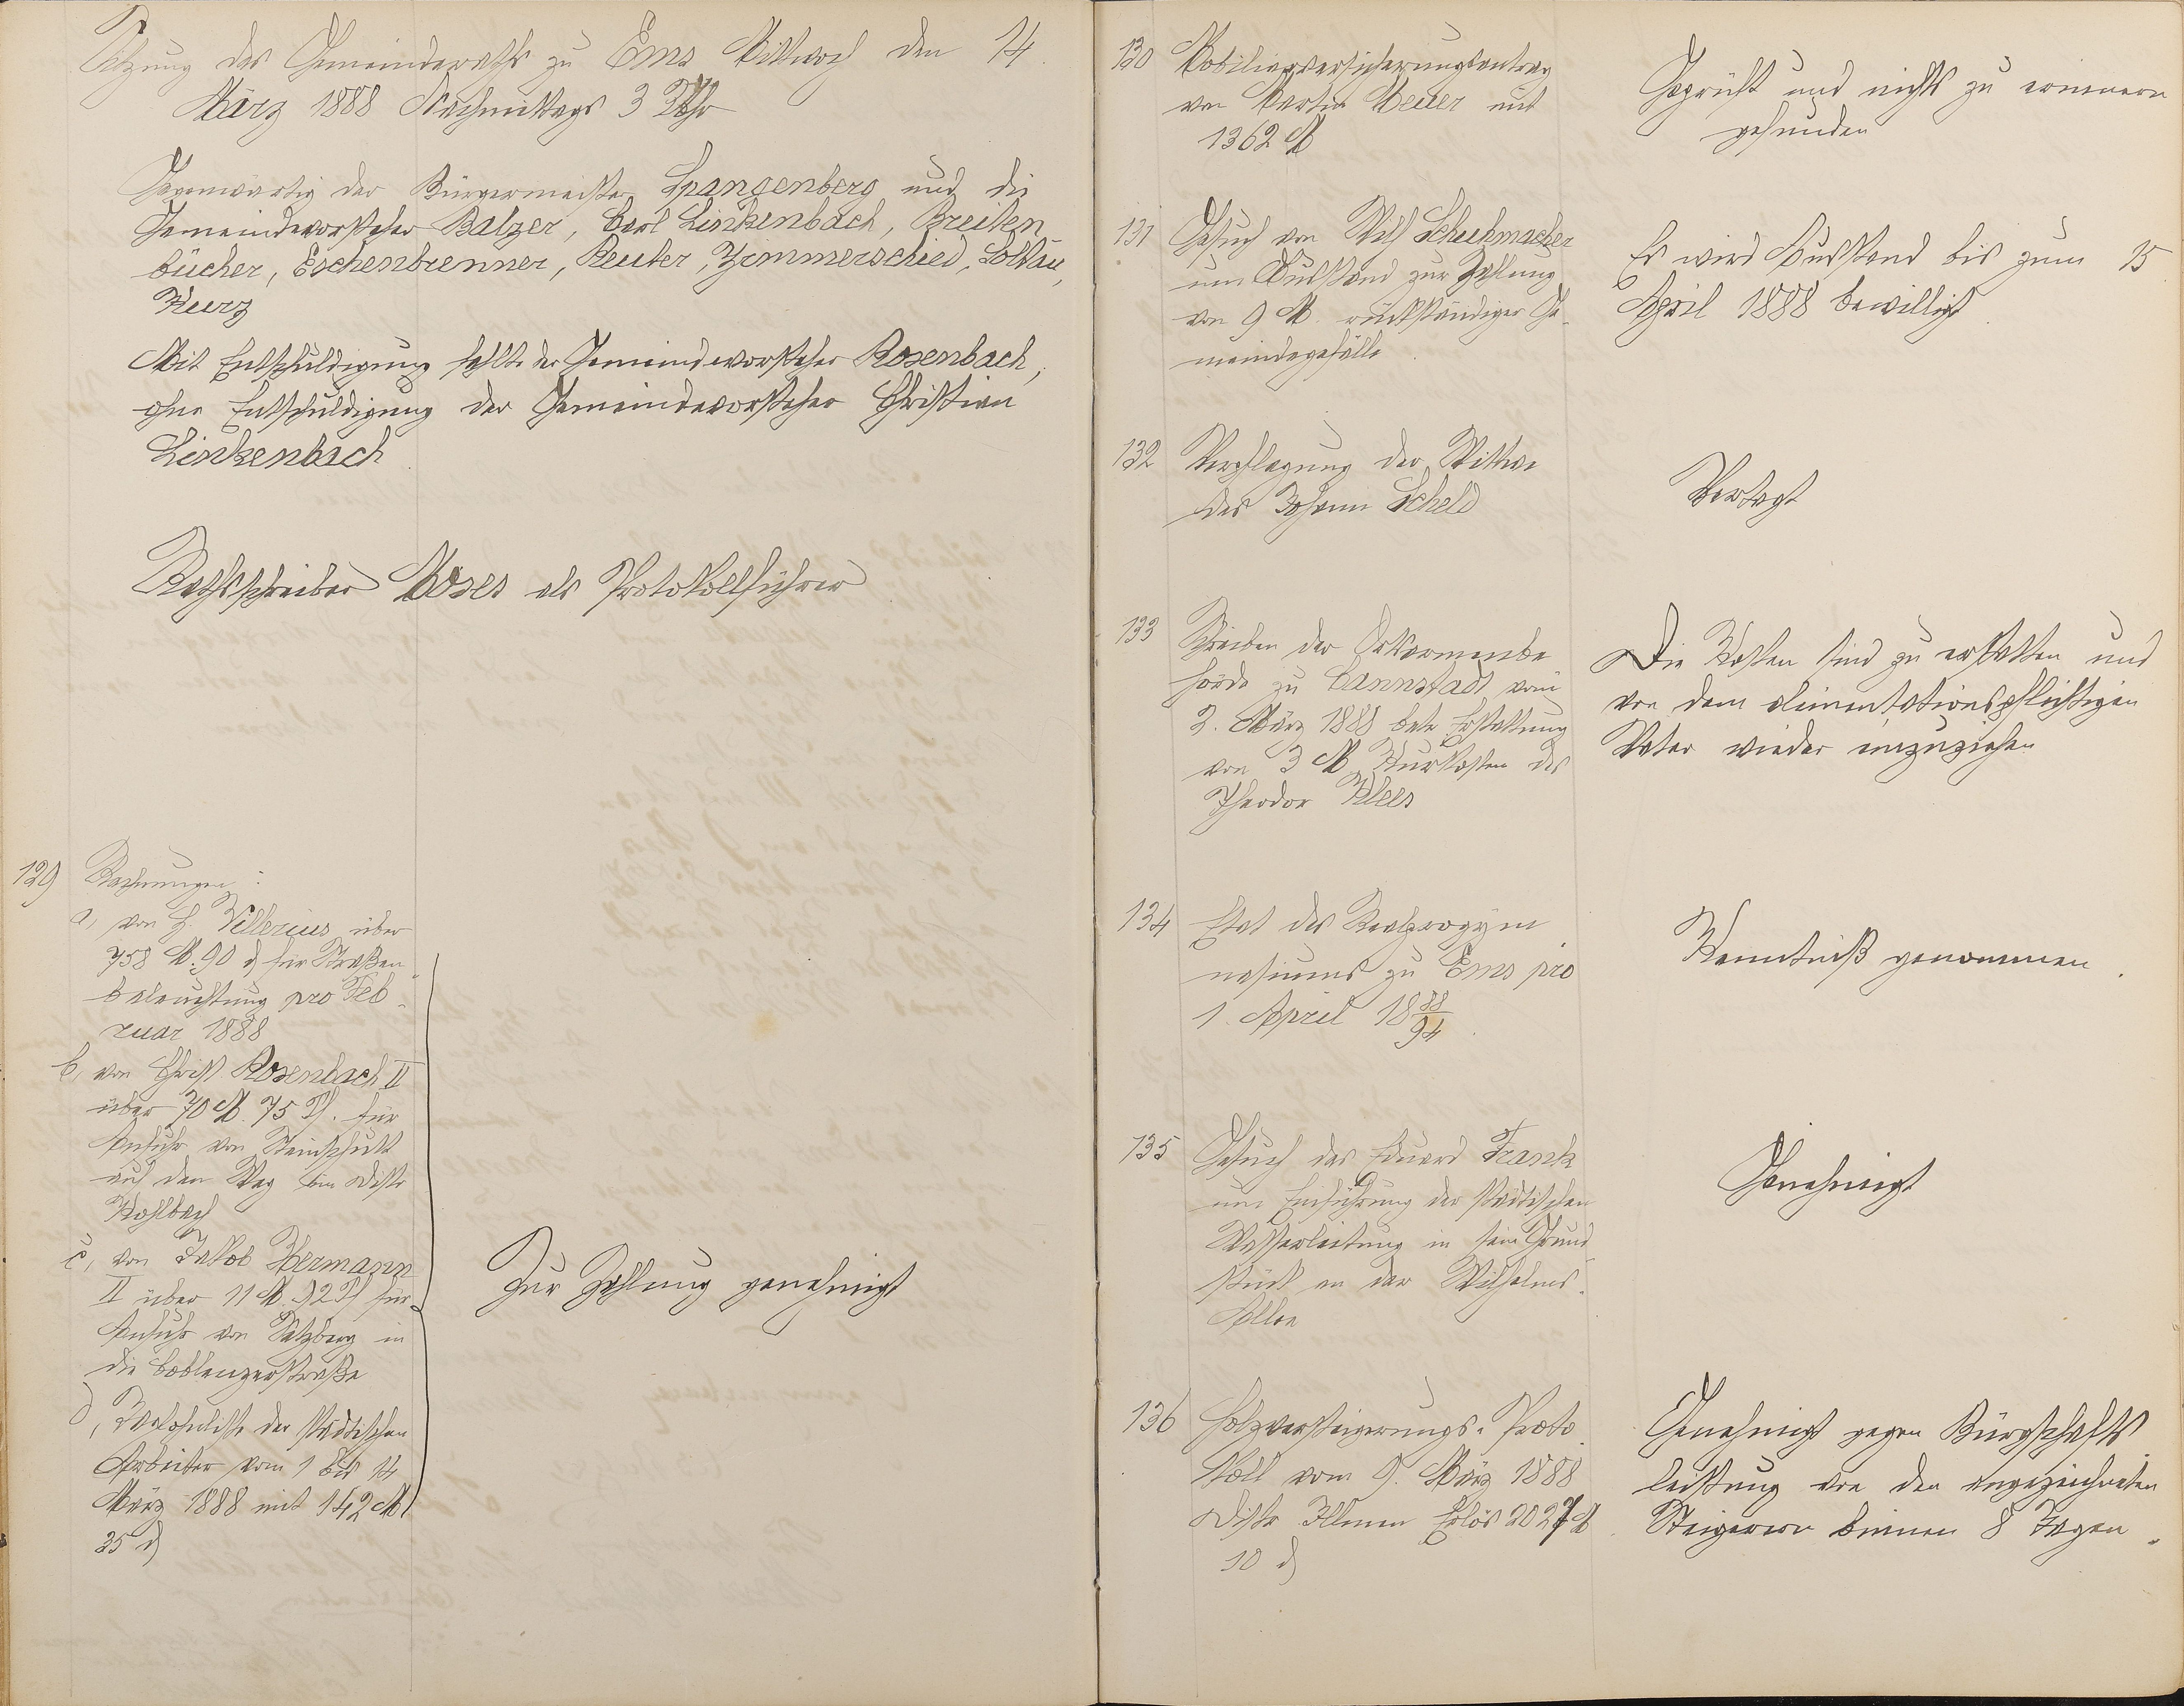 Sitzung des Gemeinderaths zu Ems Mittwoch den 14.
März 1888 Nachmittags 3 Uhr
Gegenwärtig der Bürgermeister Spangenberg und die
Gemeindevorsteher Balzer, Carl Linkenbach, Breiten
bücher, Eschenbrenner, Reuter, Zimmerschied, Soltau,
Kurz
Mit Entschuldigung fehlte der Gemeindevorsteher Rosenbach,
ohne Entschuldigung der Gemeindevorsteher Christian
Linkenbach
Rathsschreiber Moses als Protokollführer
129 Rechnungen:
a, von H. Vellerius über
758 M. 90 d für Straßen
beleuchtung pro Feb-
ruar 1888
b, von Christ Rosenbach II
über 70 M. 75 Pf. für
Anfuhr von Steinschutt
auf den Weg im Distr
Kohlbach
c, von Jakob Hermann
II über 11 M. 92 Pf für
Anfuhr von Setzberg in
die Coblenzerstraße
d, Verlohnliste der städtischen
Arbeiter vom 1 bis 14
März 1888 mit 142 M
35 d
Zur Zahlung genehmigt
130 Mobiliarversicherungsantrag
von Martin Meuer mit
1362 M
Geprüft und nichts zu erinnern
gefunden
131 Gesuch von Wilh Schuhmacher
um Ausstand zur Zahlung
von 9 M. rückständiger Ge-
meindegefälle
Es wird Ausstand bis zum 15
April 1888 bewilligt
132 Verpflegung der Wittwe
des Johann Scheld
Vertagt
133 Schreiben der Ortsarmenbe
hörde zu Cannstadt vom
2. März 1888 betr Erstattung
von 3 M Kurkosten des
Theodor Klees
Die Kosten sind zu erstatten und
von dem alimentationspflichtigen
Vater wieder einzuziehen
134 Etat des Realprogym
nasiums zu Ems pro
1. April 18 88/94
Kenntniß genommen.
135 Gesuch des Eduard Frank
um Einführung der städtischen
Wasserleitung in sein Grund
stück in der Wilhelms-
Allee
Genehmigt
136 Holzversteigerungs-Proto
koll vom 9. März 1888
Distr Illmen Erlös 2027 M
10 d
Genehmigt gegen Bürgschafts
leistung von den eingezeichneten
Steigerern binnen 8 Tagen.